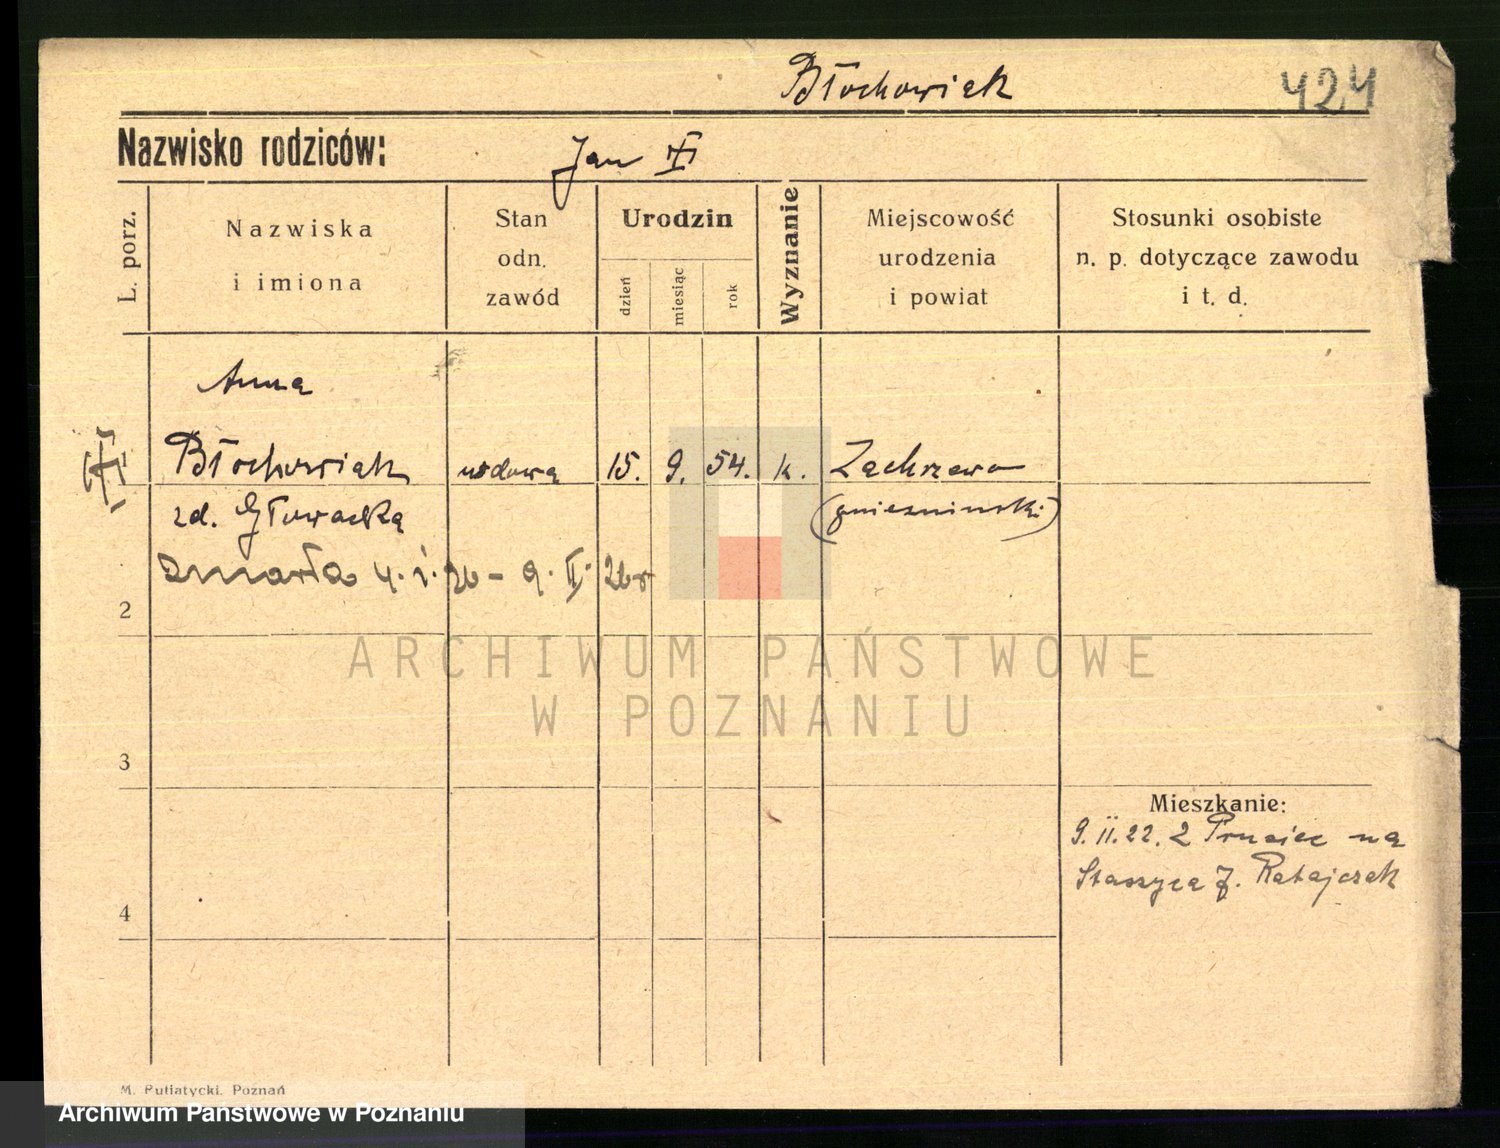 Błochowiak 424
Nazwisko rodziców:
Jan
L. porz.
Nazwiska
i imiona
Stan
odn.
zawód
Urodzin
dzień
miesiąc
rok
Wyznanie
Miejscowość
urodzenia
i powiat
Stosunki osobiste
n. p. dotyczące zawodu
i t. d.
Anna
Błochowiak wdowa 15. 9. 54. k. Zachrzewo
zd. Głowacka (gniezninski)
zmarła 4. I. 26 – 9. II. 26 r
2
ARCHIWUM PAŃSTWOWE
W POZNANIU
3
Mieszkanie:
9. II. 22. z na
Staszyca Ratajczak
4
M. Putiatycki, Poznań
Archiwum Państwowe w Poznaniu